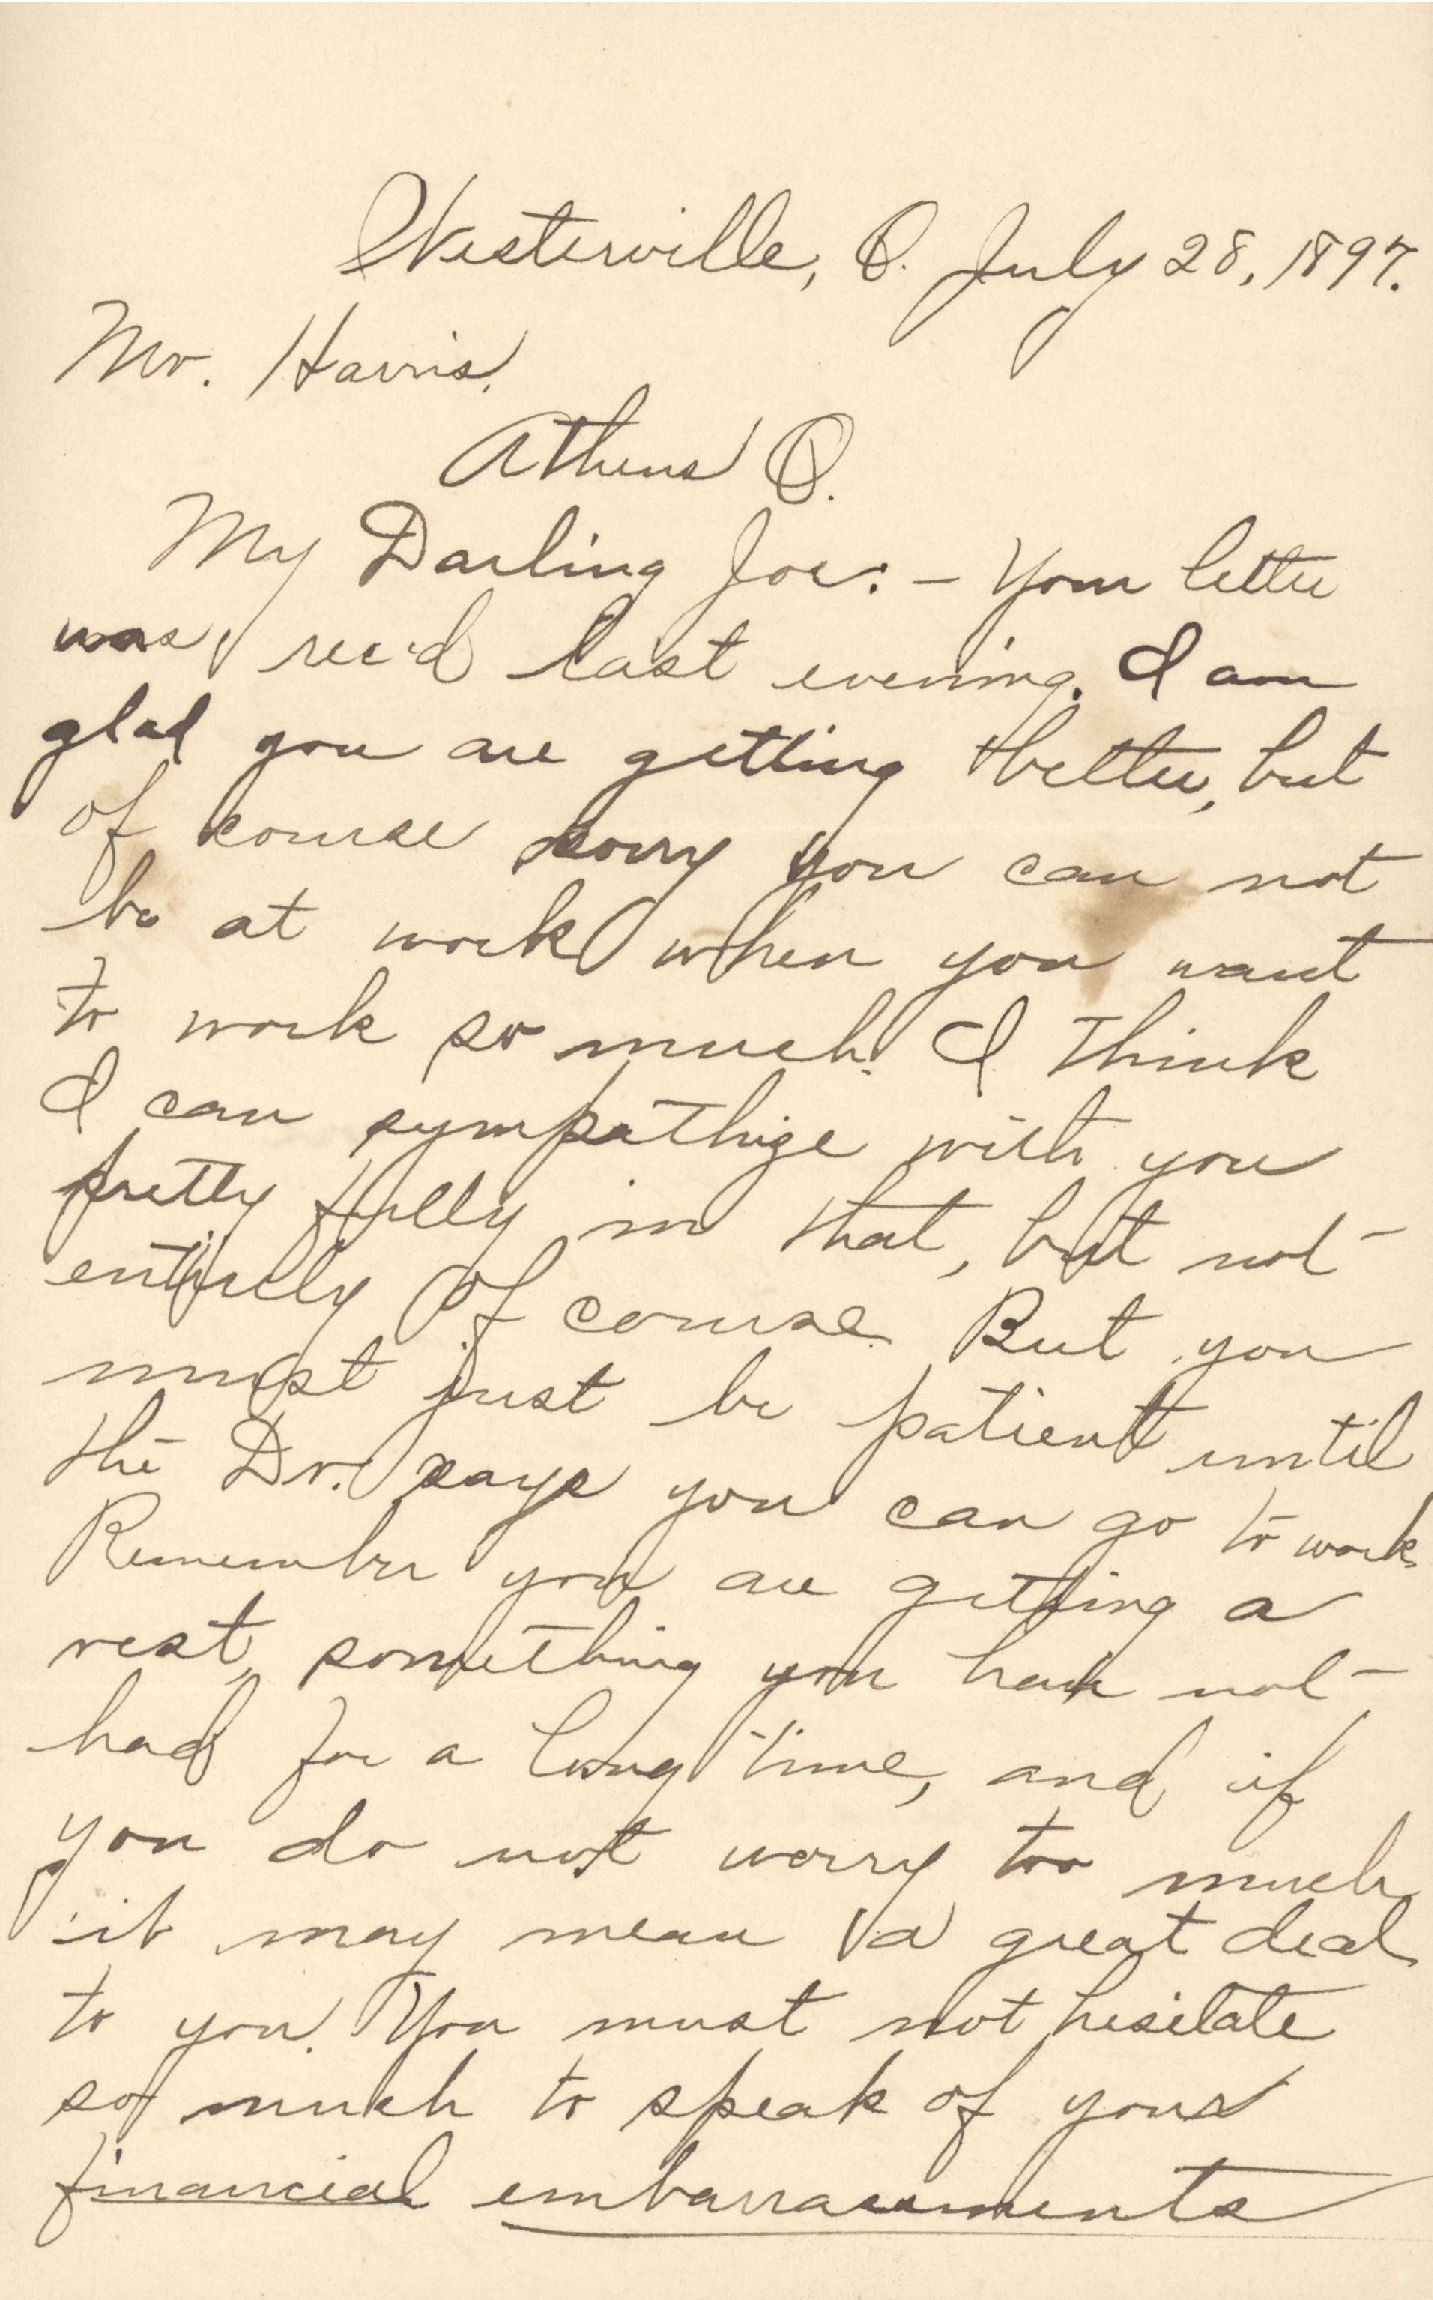 Westerville, O. July 28, 1897.
Mr. Harris.
Athens O.
My Darling Joe: – Your letter
was rec'd last evening. I am
glad you are getting better, but
of course sorry you can not
be at work when you want
to work so much. I think
I can sympathize with you
pretty fully in that, but not
entirely of course. But you
must just be patient until
the Dr. says you can go to work.
Remember you are getting a
rest, something you have not
had for a long time, and if
you do not worry too much
it may mean a great deal
to you. You must not hesitate
so much to speak of your
financial embarrassments